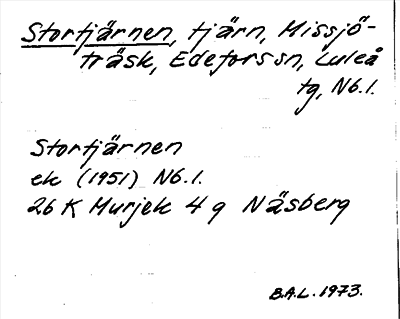 Stortjärnen, tjärn, Missjö-
träsk, Edefors sn, Luleå
tg, Nb.l.
Stortjärnen
ek (1951) Nb.l.
26 K Murjek 4 g Näsberg
B.A.L. 1973.